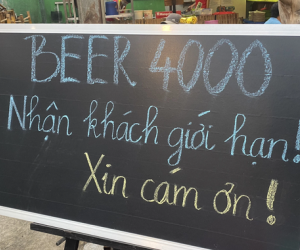 BEER 4000
Nhận khách giới hạn!
Xin cám ơn!